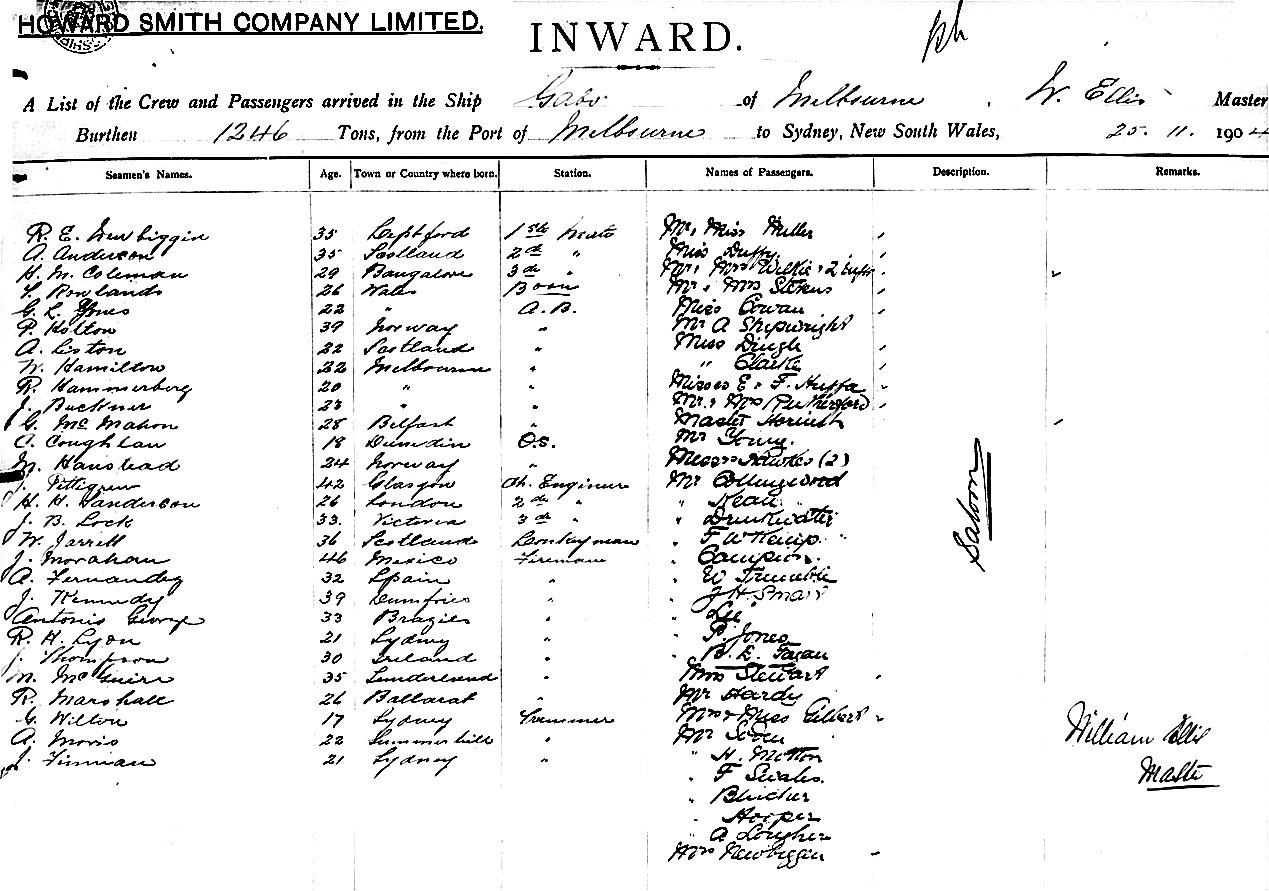 HOWARD SMITH COMPANY LIMITED.
INWARD.
A List of the Crew and Passengers arrived in the Ship Gabo of Melbourne, W. Ellis Master
Burthen 1246 Tons, from the Port of Melbourne to Sydney, New South Wales, 25. 11. 1904
Seamen's Names. Age. Town or Country where born. Station. Names of Passengers. Description. Remarks.
R. E. Newbiggin 35 Deptford 1st Mate Mr & Miss Miller
A. Anderson 35 Scotland 2nd " Miss Duffy
H. M. Coleman 29 Bangalore 3rd " Mr & Mrs Wilkie & 2
Rowlands 26 Wales Bosun Mr & Mrs
G. L. Jones 22 " A.B. Miss Cowan
P. Holton 39 Norway " Mr A Shipwright
A. Liston 22 Scotland " Miss Dingle
W. Hamilton 22 Melbourne " " Clarke
R. Hammerberg 20 " " Misses E & F.
J. Buckner 23 " " Mr & Mrs Rutherford
G. McMahon 28 Belfast " Master
C. Coughlan 18 Dunedin O.S. Mr Young.
M. Hanstead 24 Norway " Messrs Hawkes (2)
J. Pettigrew 42 Glasgow Ch. Engineer Mr Collingwood
H. H. Sanderson 26 London 2nd " "
J. B. Lock 33. Victoria 3rd " " Drinkwater
W. Jarrett 36 Scotland Donkeyman " F W Kemp.
J. Morahan 46 Mexico Fireman " Campion.
A. Fernandez 32 Spain " " W Trumble
J. Kennedy 39 Dumfries " " J H Smair
Antonis George 33 Brazies " " Lee
R. H. Lyon 21 Sydney " " P. Jones
J. Thompson 30 Ireland " " B. E.
M. McGuire 35 Sunderland " Mrs Stewart
R. Marshall 26 Ballarat " Mr Hardy
G. Wilton 17 Sydney Trimmer Mrs & Miss Gilbert
A. Morris 22 Summerhill " Mr
J. Finnan 21 Sydney " " H. Motton
" F
" Blucher
" Hooper
" A Lougher
Mrs Newbiggin
Saloon
William Ellis
Master